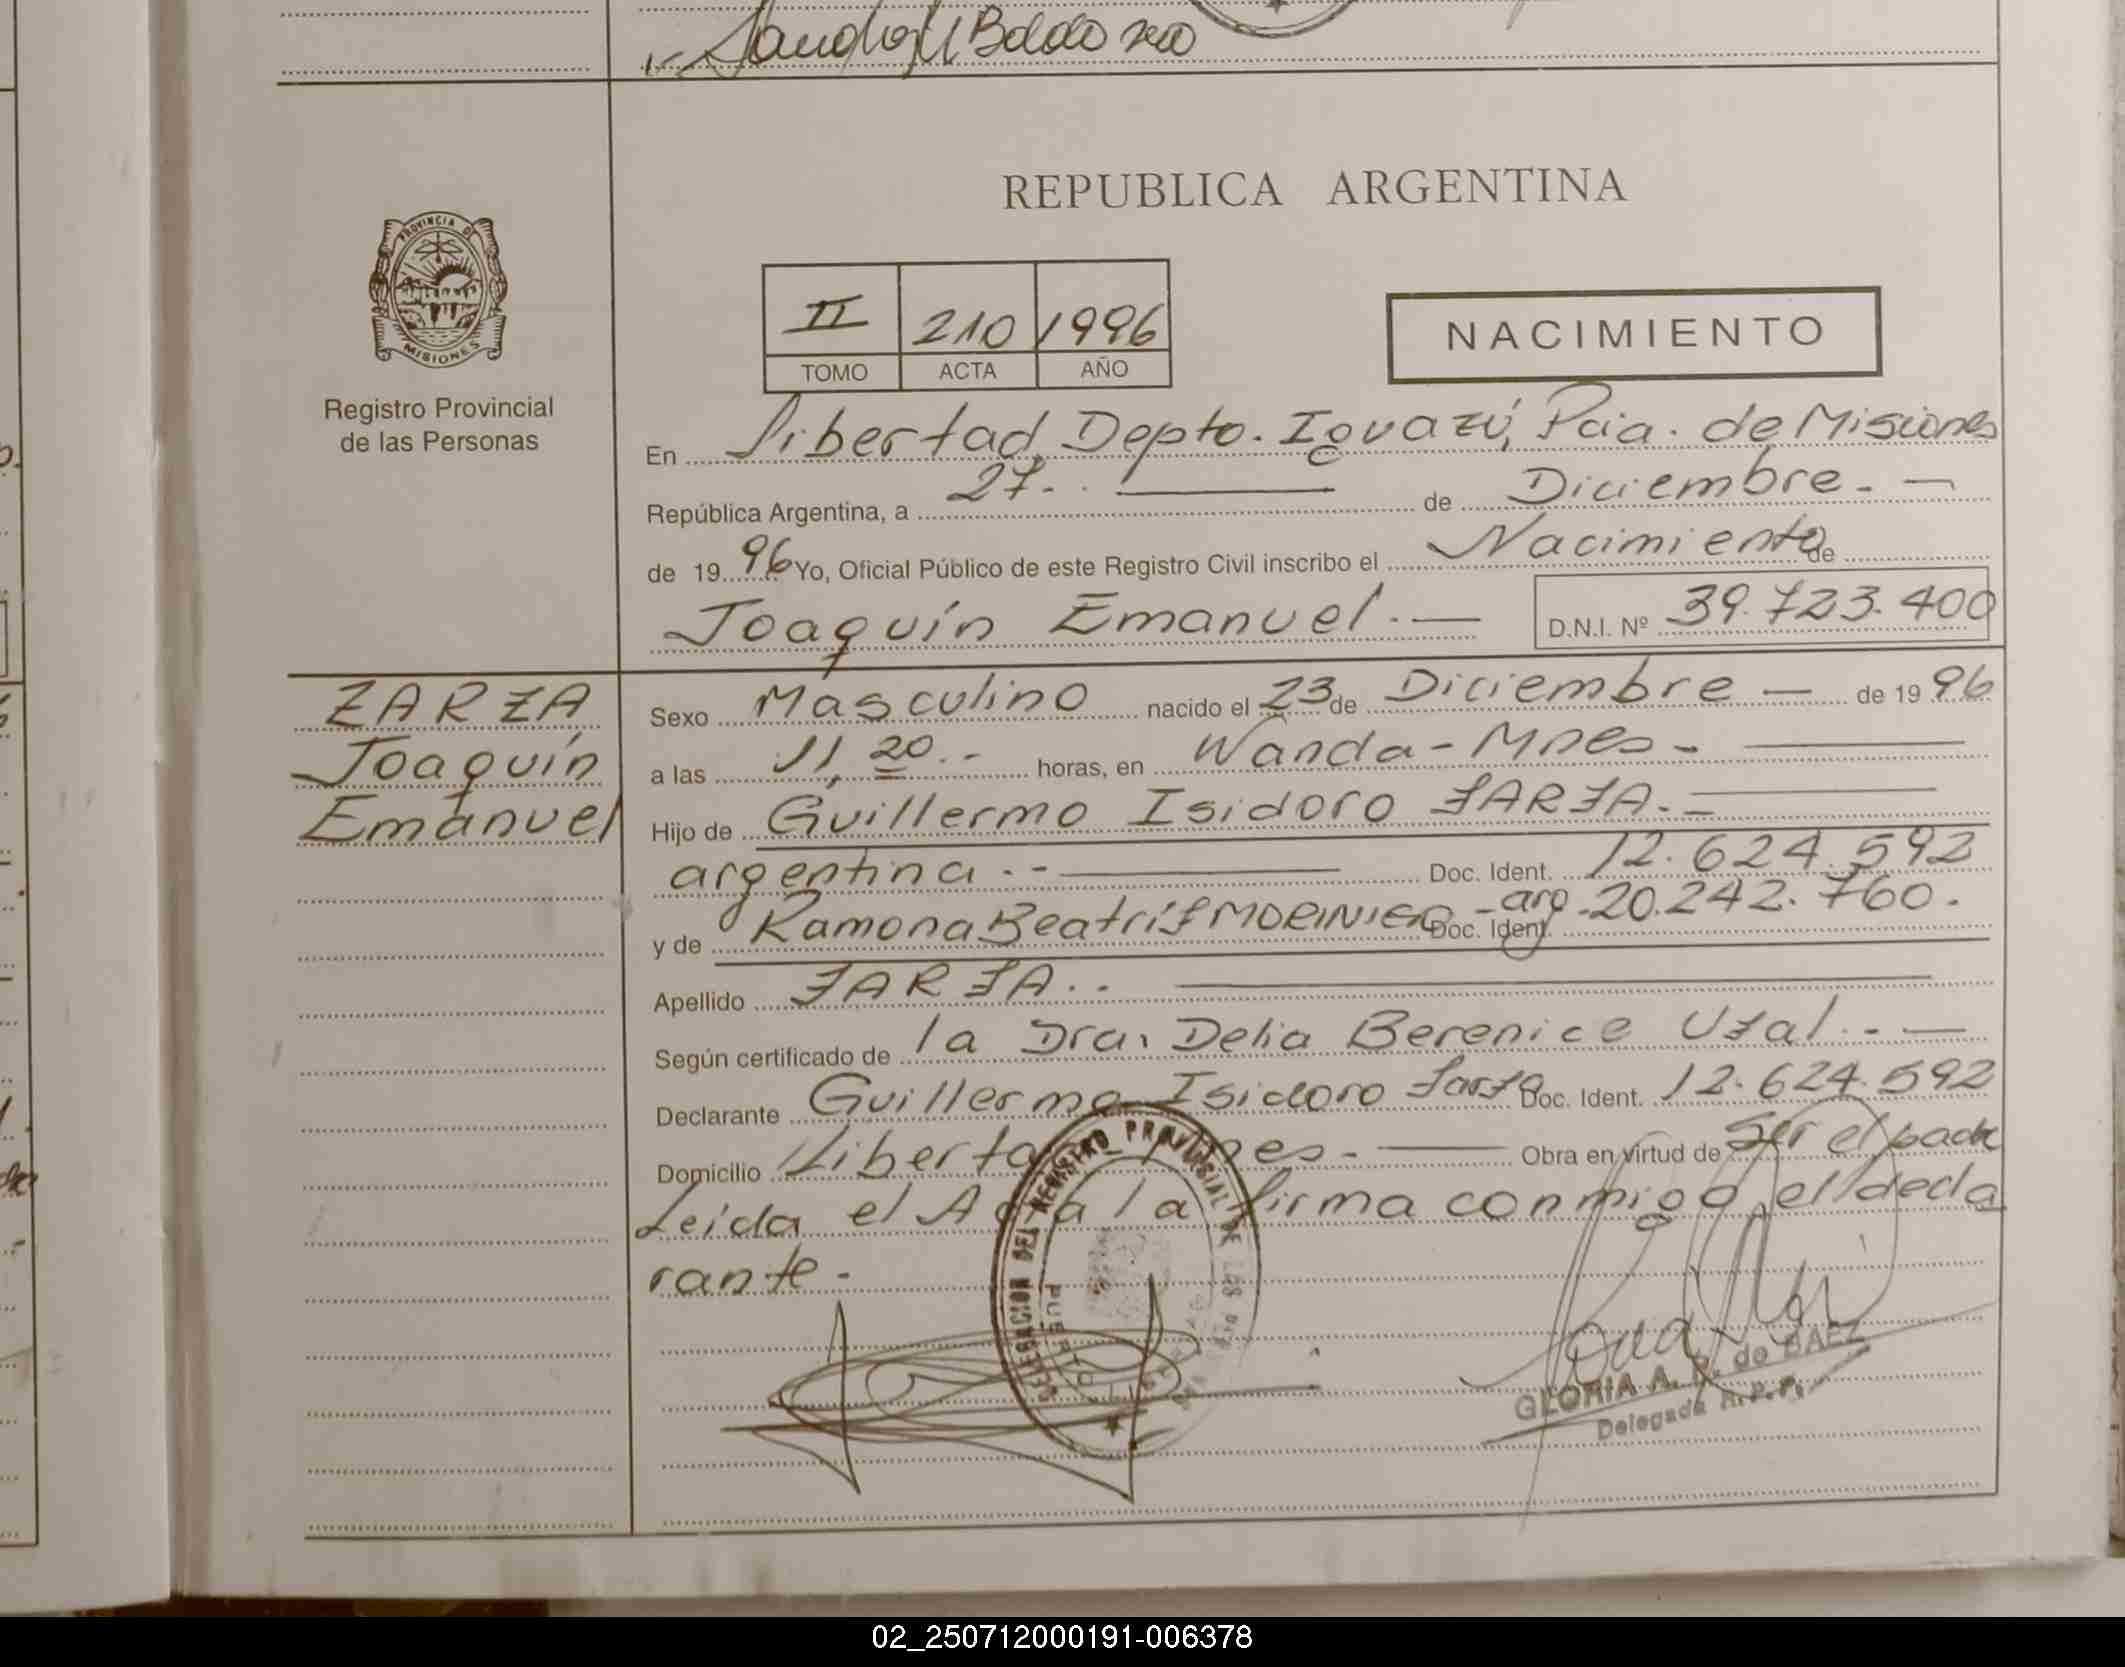 PROVINCIA DE
MISIONES
Registro Provincial
de las Personas
REPUBLICA ARGENTINA
II 210 1996
TOMO ACTA AÑO
NACIMIENTO
En Libertad, Depto. Iguazú, Pcia. de Misiones
República Argentina, a 27.- de Diciembre.-
de 1996 Yo, Oficial Público de este Registro Civil inscribo el Nacimiento de
Joaquín Emanuel.- D.N.I. Nº 39.723.400
ZARZA
Joaquín
Emanuel
Sexo Masculino nacido el 23 de Diciembre - de 1996
a las 11,20.- horas, en Wanda - Mnes -
Hijo de Guillermo Isidoro ZARZA.-
argentina.- Doc. Ident. 12.624.592
y de Ramona Beatríz MORINIGO Doc. Ident. -arg-20.242.760.
Apellido ZARZA..
Según certificado de la Dra. Delia Berenice Uzal.-
Declarante Guillermo Isidoro Zarza Doc. Ident. 12.624.592
Domicilio Libertad Mnes.- Obra en virtud de Ser el padre
Leida el Acta la firma conmigo el decla
rante-
DELEGACION DEL REGISTRO PROVINCIAL DE LAS
PUERTO
GLORIA A. R. de BAEZ
Delegada R.P.P.
02_250712000191-006378